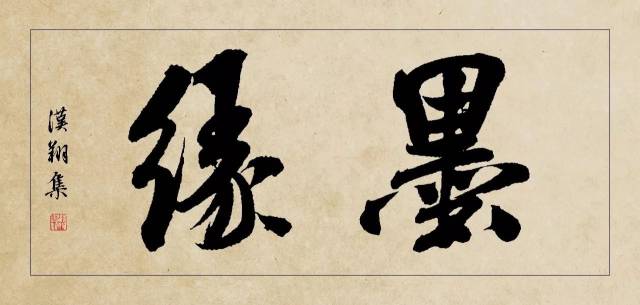 墨緣
漢翔集